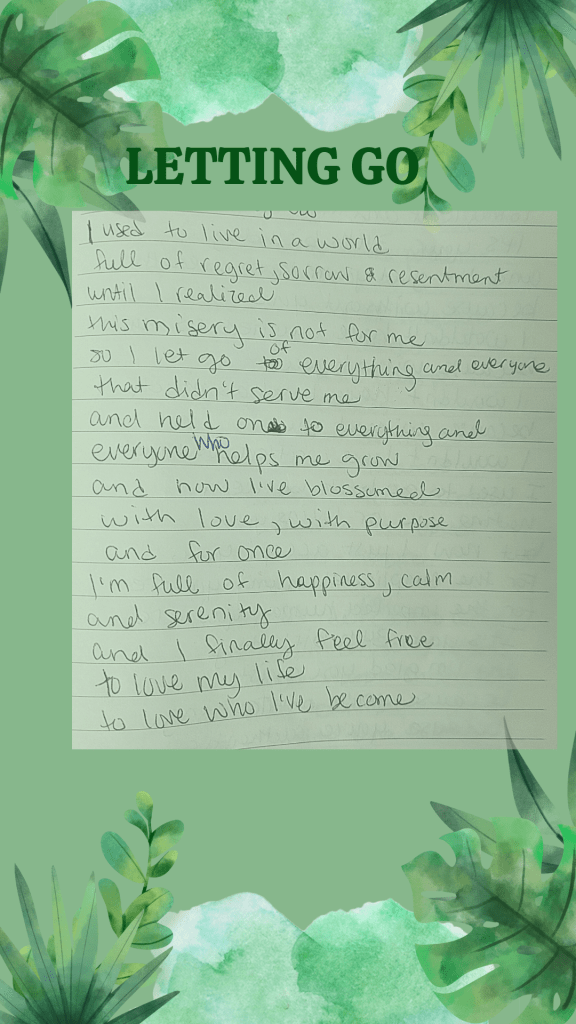 LETTING GO
I used to live in a world
full of regret, sorrow & resentment
until I realized
this misery is not for me
so I let go of everything and everyone
that didn't serve me
and held on to everything and
everyone who helps me grow
and now I've blossomed
with love, with purpose
and for once
I'm full of happiness, calm
and serenity
and I finally feel free
to love my life
to love who I've become